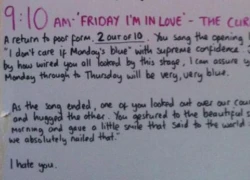 9:10 AM - "FRIDAY I'M IN LOVE" - THE CUR
A return to poor form. 2 out of 10. You sang the opening
"I don't care if Monday's blue" with supreme confidence.
by how wired you all looked by this stage, I can assure y
Monday through to Thursday will be very, very blue.
As the song ended, one of you looked out over our cou
and hugged the other. You gestured to the beautiful s
morning and gave a little smile that said to the world
we absolutely nailed that."
I hate you.